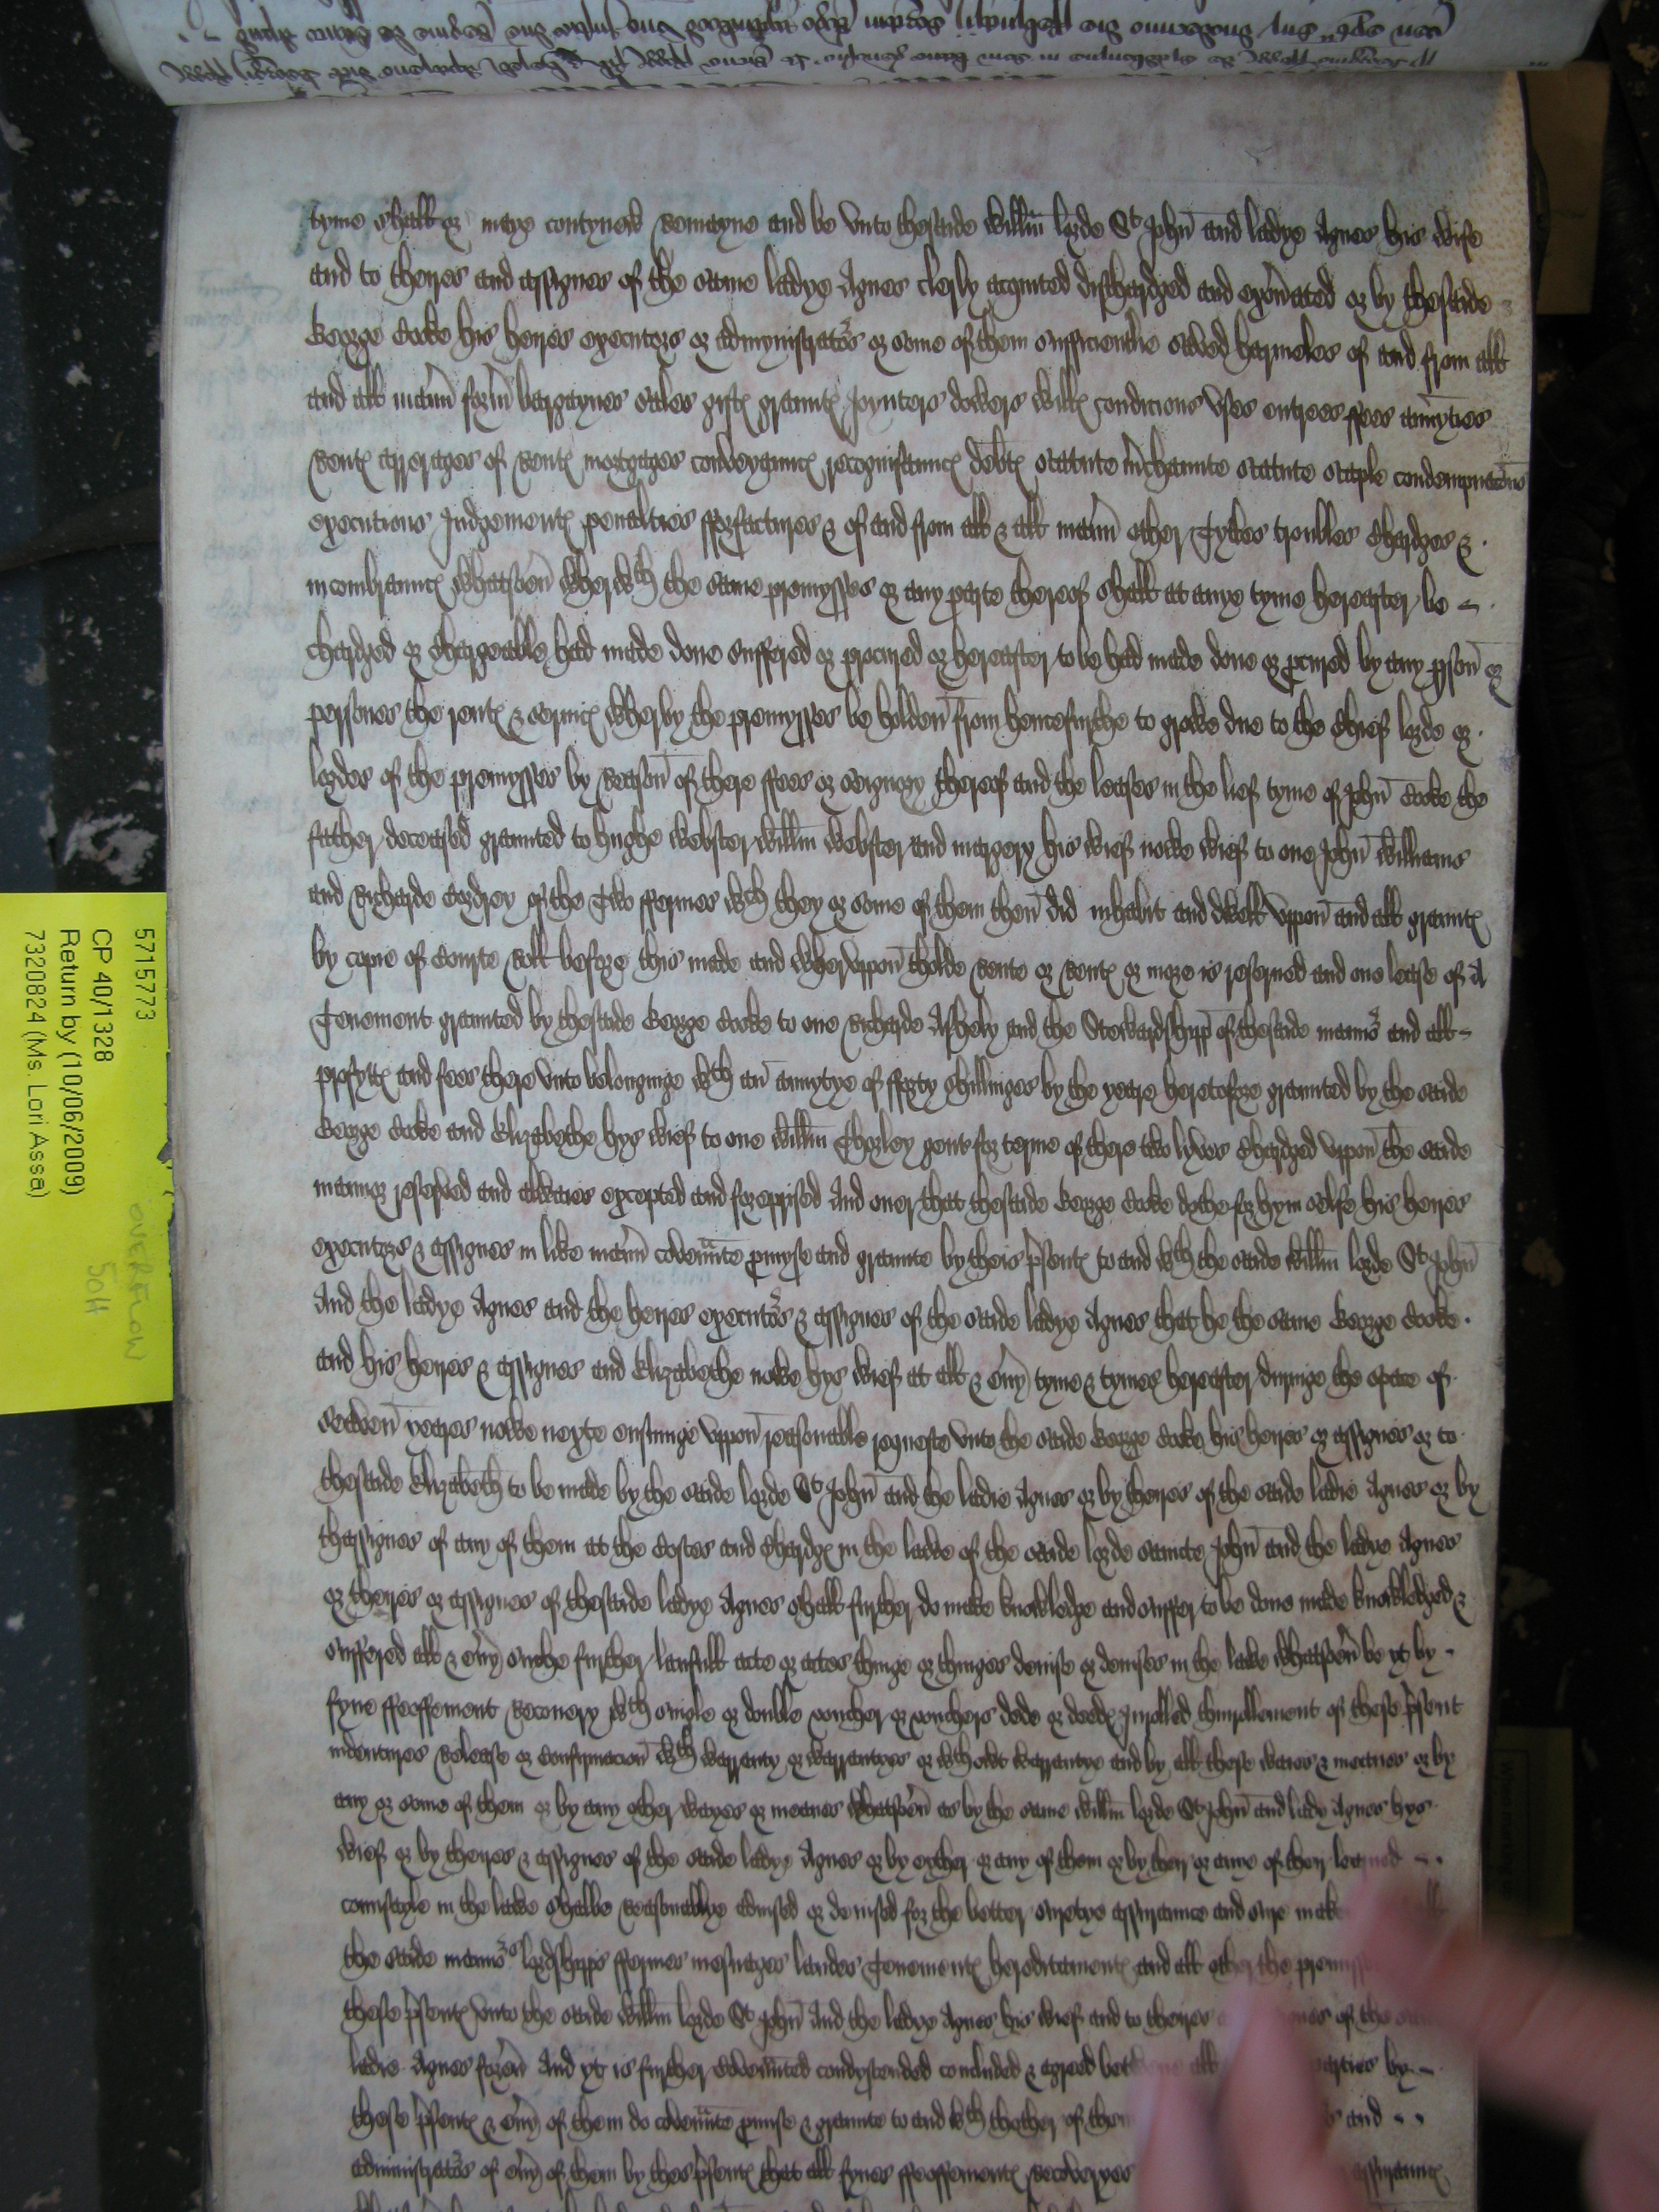 tyme shall or maye contynew remayne and be unto thesaide Willm lorde St John and ladye Agnes his wife
and to theyres and assignes of the same ladye Agnes clerly acquited dischardged and exonerated or by thesaide
George Cooke his heyres executors or admynistrators or some of them sufficientlie saved harmeles of and from all
and all mann former bargaynes sales gift grauntes Joynters dowers willes condicions uses entrees ffees annyties
Rentes arrerages of Rentes mortgages conveyaunces recognisaunces debtes statute mchaunte statute staple condempnacons
executions Judgementes penalties fforfactures & of and from all & all mann other Tytles troubles Chardges &
incombraunces Whatsoev Wherwth the same premysses or any parte thereof shall at anye tyme hereafter be
chardged or Chargeable had made done suffered or procured or hereafter to be had made done or pcured by any pson or
persones the rentes & servics wherby the premysses be holden from hencefurthe to growe due to the Chief lorde or
lordes of the premysses by Reason of there ffees or seignory thereof and the leases in the lief tyme of John Cooke the
father deceased graunted to hughe Webster Willm Webster and margery his wief nowe wief to one John Williams
and Richarde Cordrey of the Two ffermes wch they or some of them then did inhabit and dwell uppon and all grauntes
by copie of Courte Roll before this made and wheruppon tholde Rente or Rentes or more is reserved and one lease of A
Tenement graunted by thesaide George Cooke to one Richarde Asheley and the Stewardshipp of thesaide mannor and all
profyttes and fees there unto belonginge wth an annytye of fforty shillinges by the yeare heretofore graunted by the saide
George Cooke and Elizabethe hys wief to one Willm Thorley gent for terme of there two lyves Chardged uppon the saide
mannor reserved and alwaies excepted and foreprised And over that thesaide George Cooke dothe for hym selfe his heires
executors & assignes in like mann covennte pmyse and graunte by theis psentes to and wth the saide Willm lorde St John
And the ladye Agnes and the heires executors & assignes of the saide ladye Agnes that he the same George Cooke
and his heires & assignes and Elizabethe nowe hys wief at all & evy tyme & tymes hereafter duringe the space of
Seaven yeares nowe nexte ensuinge uppon reasonable requeste unto the saide George Cooke his heires or assignes or to
thesaide Elizabeth to be made by the saide lorde St John and the ladie Agnes or by theyres of the saide ladie Agnes or by
thassignes of any of them at the Costes and Chardges in the lawe of the saide lorde Saincte John and the ladye Agnes
or theyres or assignes of thesaide ladye Agnes shall further do make knowledge and suffer to be done made knowledged &
suffered all & evy suche further laufull acte or actes thinge or thinges devise or devises in the lawe whatsoev be yt by
fyne ffeoffement Recovery wth single or double voucher or vouchers dede or deedes Inrolled thinrollement of these psent
indentures Release or Confirmacion wth warranty or warrantyes or wthowt warrantye and by all these waies & meanes or by
any or some of them or by any other wayes or meanes whatsoev as by the same Willm lorde St John and lady Agnes hys
wief or by theyres & assignes of the saide ladye Agnes or by eyther or any of them or by their or anie of their learned
counsayle in the lawe shalbe Reasonablye advised or devised for the better suretye assuraunce and sure make
the saide mannors lordshipps ffermes mesuages landes Tenementes hereditamentes and all other the premiss
these psentes unto the saide Willm lorde St John And the ladye Agnes his wief and to theyres of the
ladie Agnes forev And yt is further Covennted condyscended concluded & agreed parties by
these psentes & evy of them do covennte pmise & graunte to and wth thother of them and
administrators of evy of them by thes psentes that all fynes ffeoffementes Recoveryes assurauncs
5715773
CP 40/1328
Return by (10/06/2009)
7320824 (Ms. Lori Assa)
OVERFLOW
50H